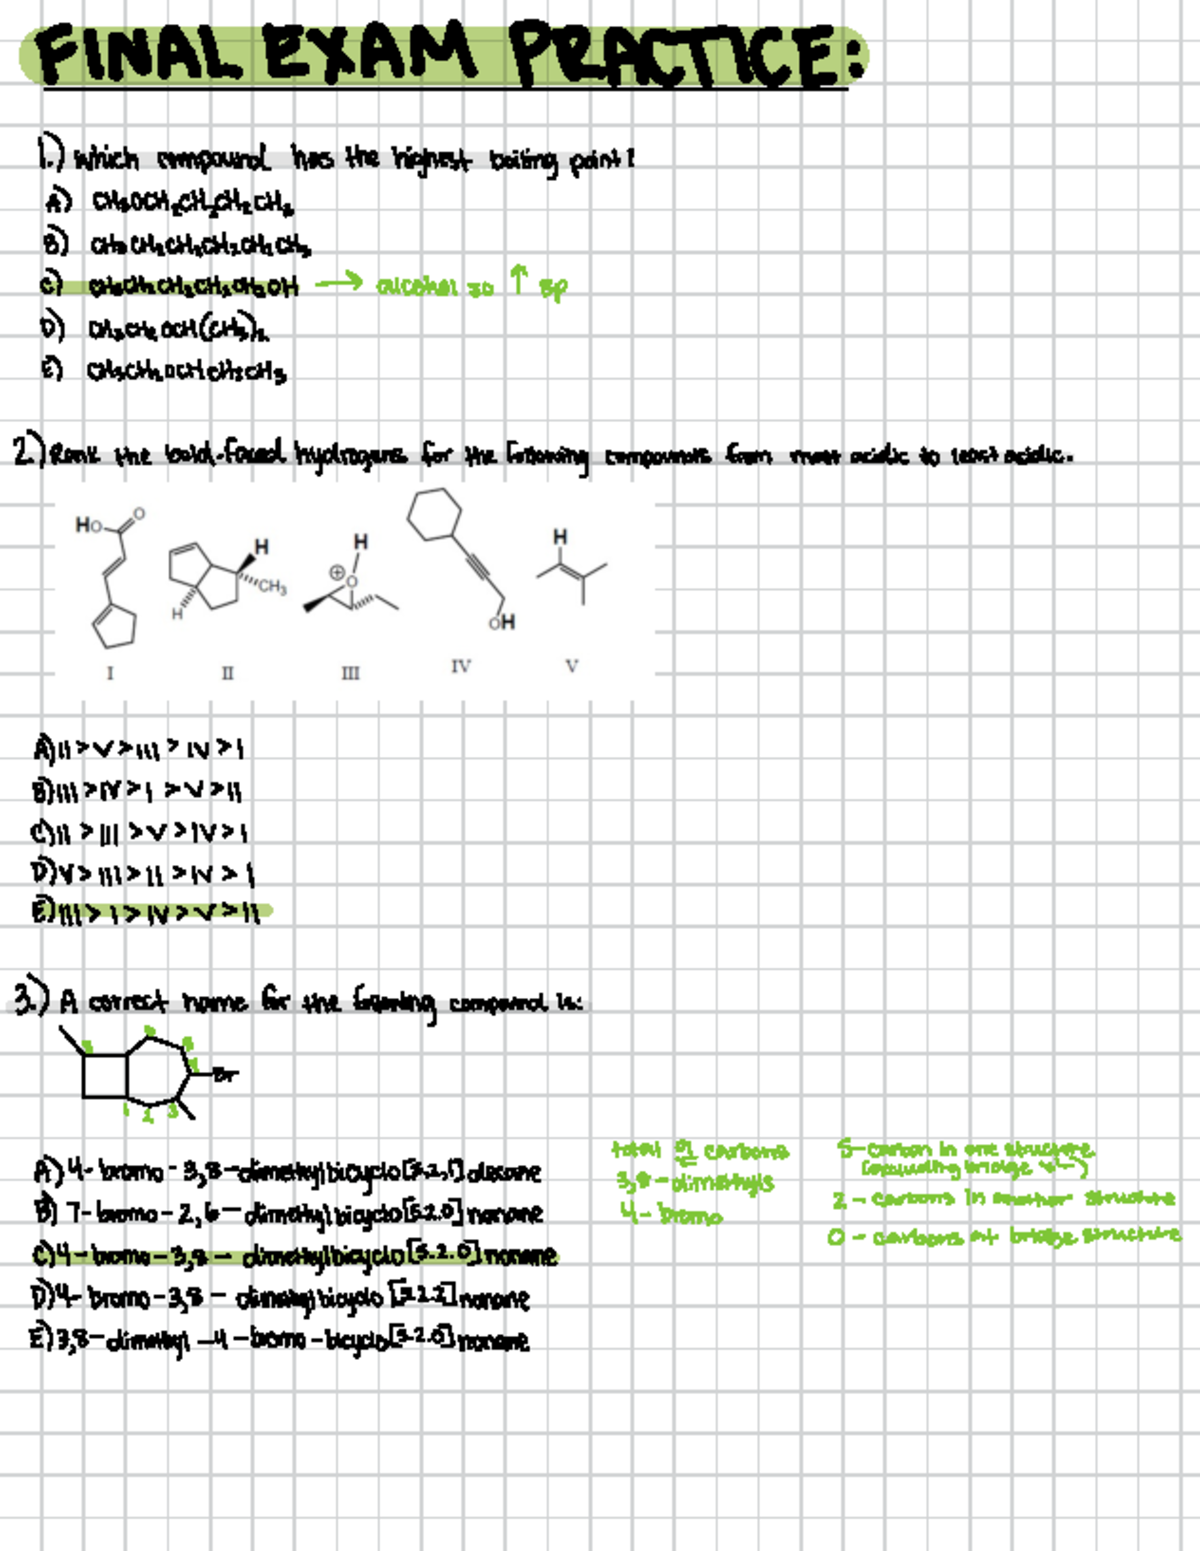 FINAL EXAM PRACTICE:
1.) which compound has the highest boiling point?
A) CH3OCH2CH2CH2CH3
B) CH3CH2CH2CH2CH2CH3
C) CH3CH2CH2CH2CH2OH → alcohol so ↑ BP
D) CH3CH2OCH(CH3)2
E) CH3CH2OCH2CH2CH3
2.) Rank the bold-faced hydrogens for the following compounds from most acidic to least acidic.
HO O
H
CH3
H
H
⊕
O
OH
H
I II III IV V
A) II > V > III > IV > I
B) III > IV > I > V > II
C) II > III > V > IV > I
D) V > III > II > IV > I
E) III > I > IV > V > II
3.) A correct name for the following compound is:
Br
1 2 3
total 9 carbons
3,8-dimethyls
4-bromo
5-carbon in one structure
2-carbons in another structure
0-carbons at bridge structure
A) 4-bromo-3,8-dimethylbicyclo
B) 7-bromo-2,6-dimethylbicyclo[5.2.0]nonane
C) 4-bromo-3,8-dimethylbicyclo[5.2.0]nonane
D) 4-bromo-3,8-dimethylbicyclo nonane
E) 3,8-dimethyl-4-bromo-bicyclo[5.2.0]nonane